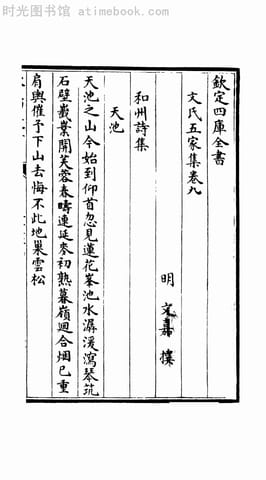 时光图书馆 · atimebook.com
欽定四庫全書
文氏五家集卷九
明 文嘉 撰
和州詩集
天池
天池之山今始到仰首忽見蓮花峯池水潺湲瀉琴筑
石壁巖𡸁開芙蓉春疇連延麥初熟暮嶺迴合烟已重
肩輿催予下山去悔不此地巢雲松